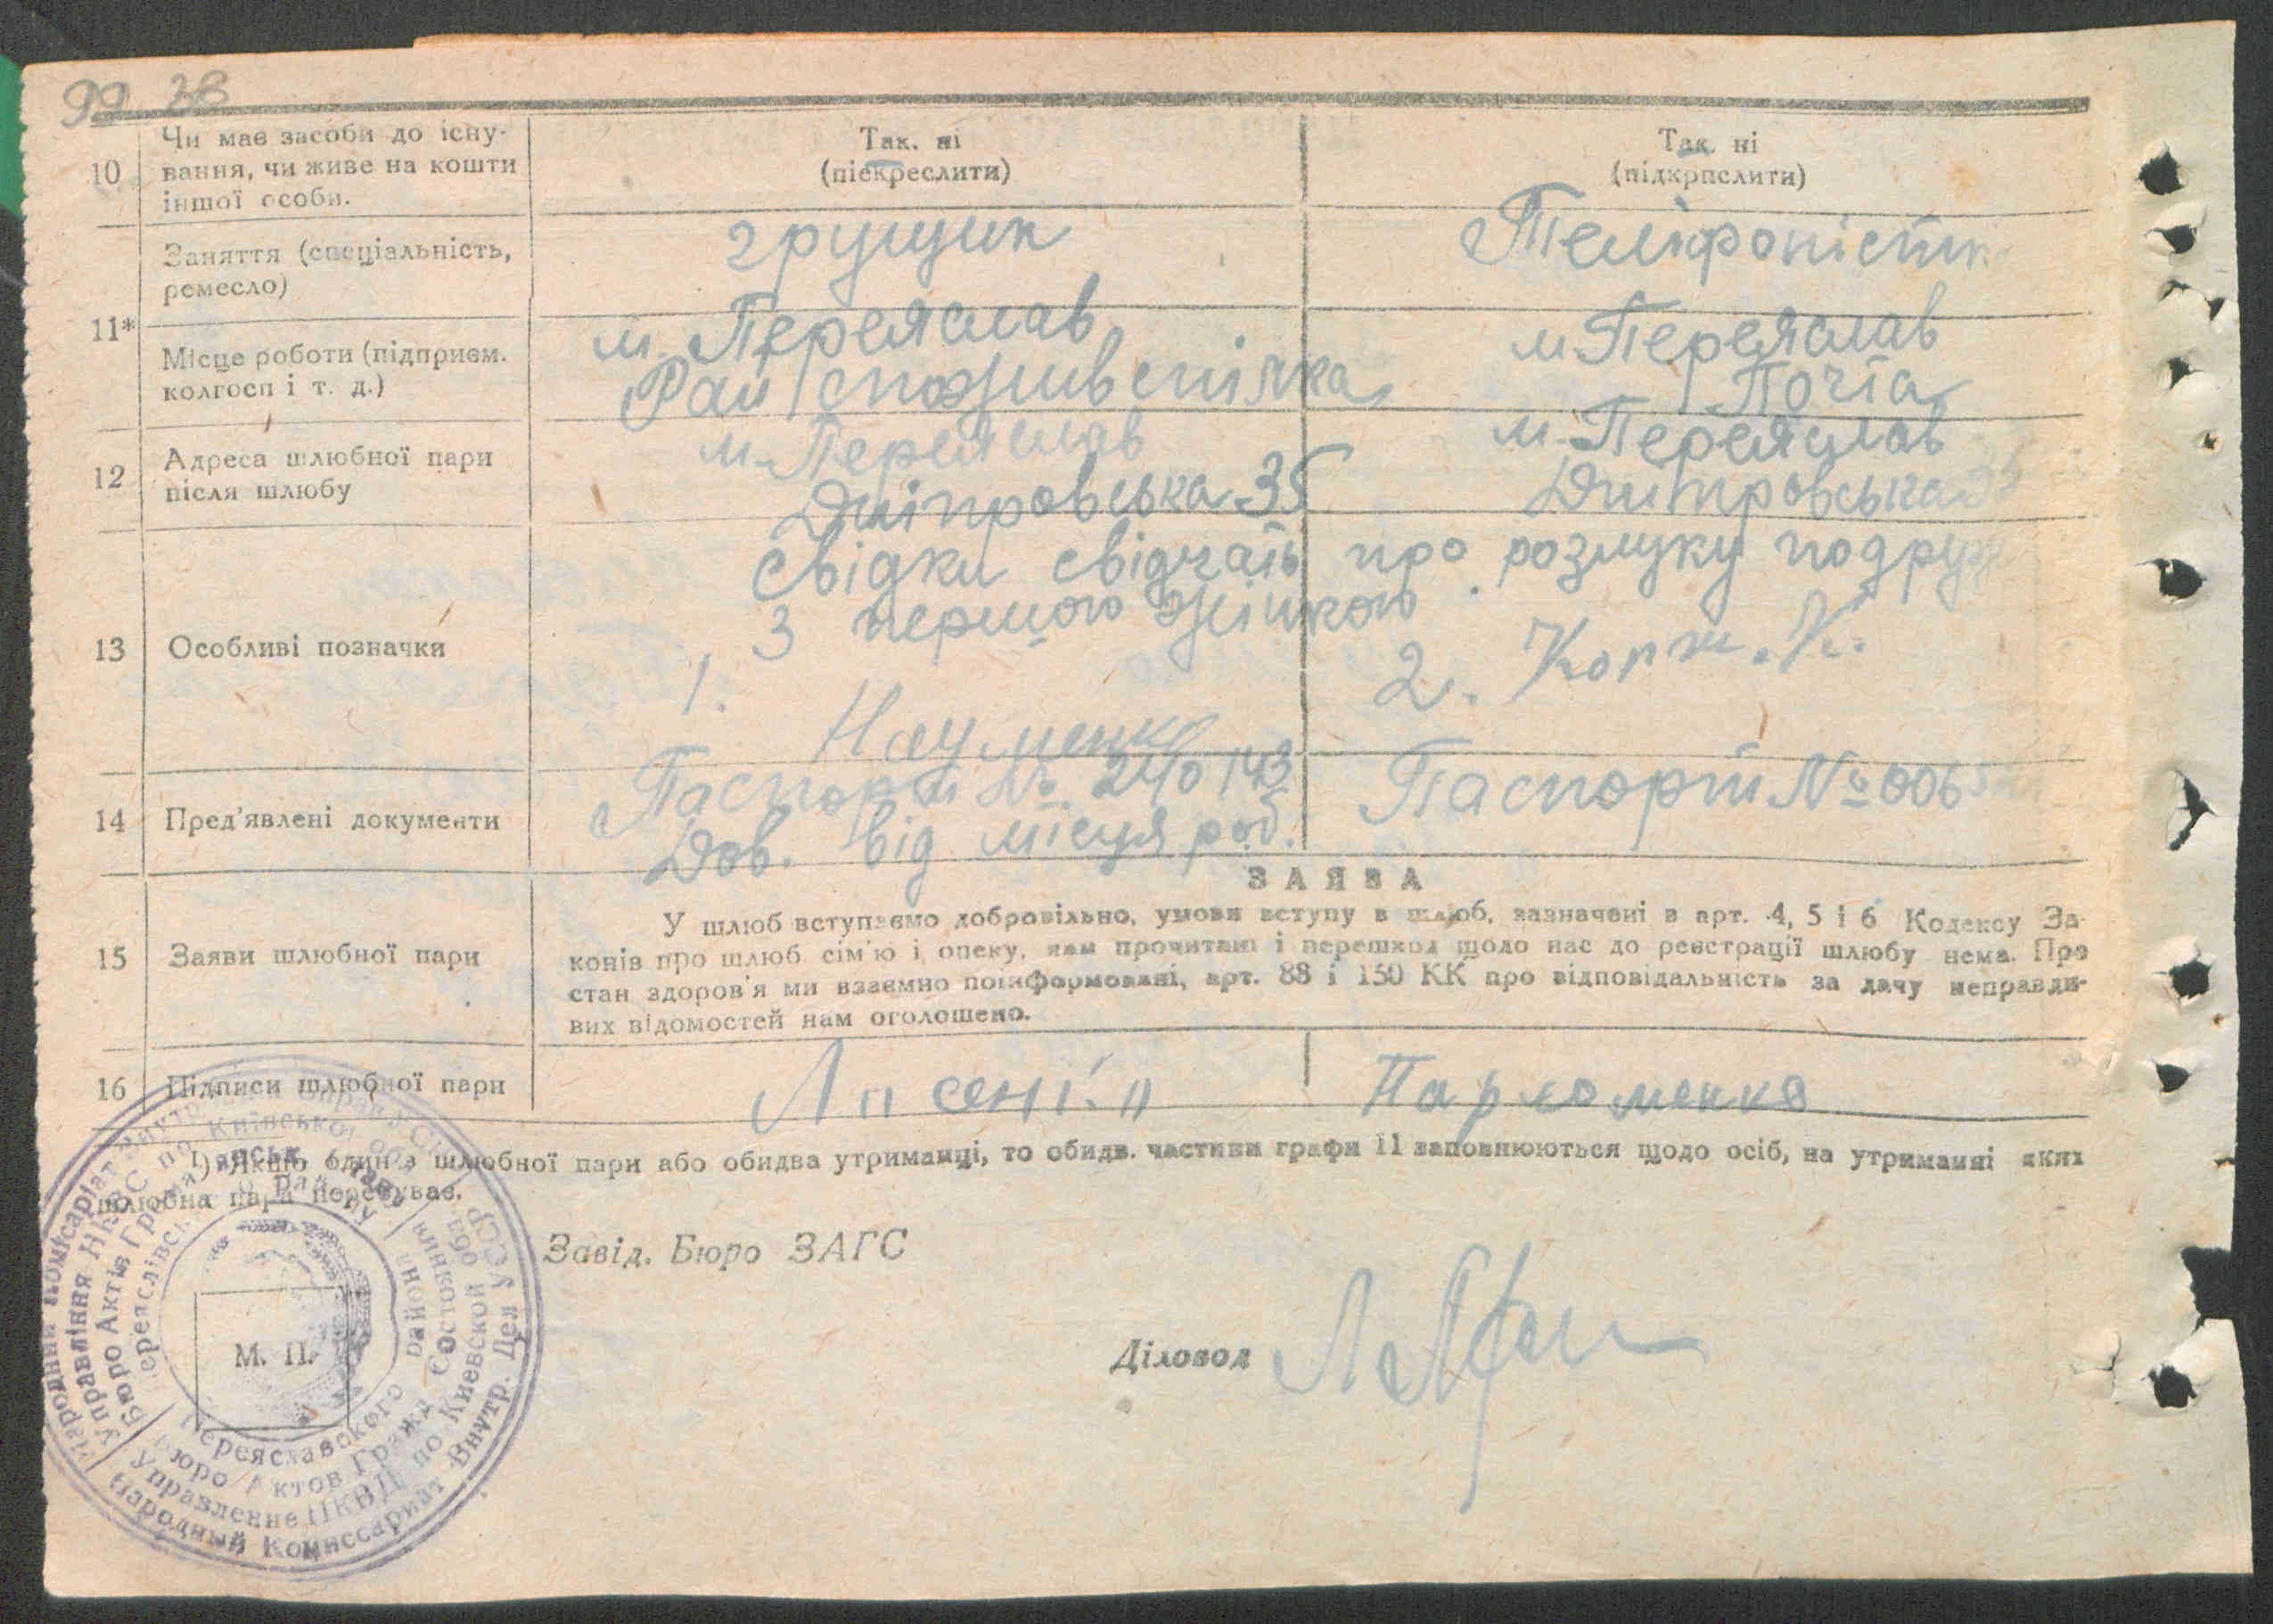 99 28
10 Чи має засоби до існу-
вання, чи живе на кошти
іншої особи.
Так. ні
(підкреслити)
Так. ні
(підкрпслити)
11*
Заняття (спеціальність,
ремесло)
грущик
Теліфоністк
Місце роботи (підприєм.
колгосп і т. д.)
м. Переяслав
Рай споживспілка
м. Переяслав
Почта
12 Адреса шлюбної пари
після шлюбу
м. Переяслав
Дніпровська 35
м. Переяслав
Дніпровська 35
13 Особливі позначки
Свідки свідчать про розлуку подруж
З першою жінкою.
1. Науменко
2. Корж. К.
14 Пред'явлені документи
Паспорт № 240143
Дов. від місця роб.
Паспорт № 0065
15 Заяви шлюбної пари
ЗАЯВА
У шлюб вступаємо добровільно, умови вступу в шлюб, зазначені в арт. 4, 5 і 6 Кодексу За-
конів про шлюб сім'ю і опеку, нам прочитані і перешкод щодо нас до реєстрації шлюбу нема. Про
стан здоров'я ми взаємно поінформовані, арт. 88 і 150 КК про відповідальність за дачу неправди-
вих відомостей нам оголошено.
16 Підписи шлюбної пари
Пархоменко
1) Якщо один з шлюбної пари або обидва утриманці, то обидв. частини графи 11 заповнюються щодо осіб, на утриманні яких
шлюбна пара перебуває.
Завід. Бюро ЗАГС
М. П.
Діловод
Народний Комісаріат Внутр. Справ УСРР
Управління НКВС по Київській обл.
Бюро Актів Грома
Переяславского района
Бюро Актов Гражд. Состояния
Управление НКВД по Киевской обл.
Народный Комиссариат Внутр. Дел УССР